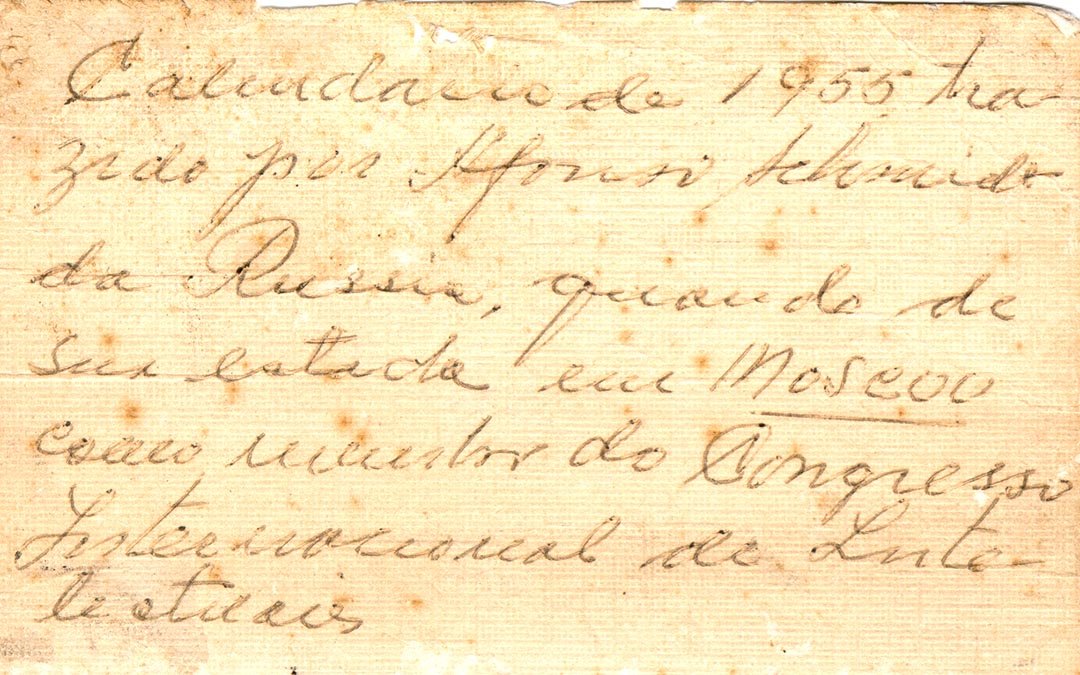 Calendario de 1955 tra-
zido por Afonso Schmidt
da Russia, quando de
sua estada em Moscou
como membro do Congresso
Internacional de Inte-
lectuais